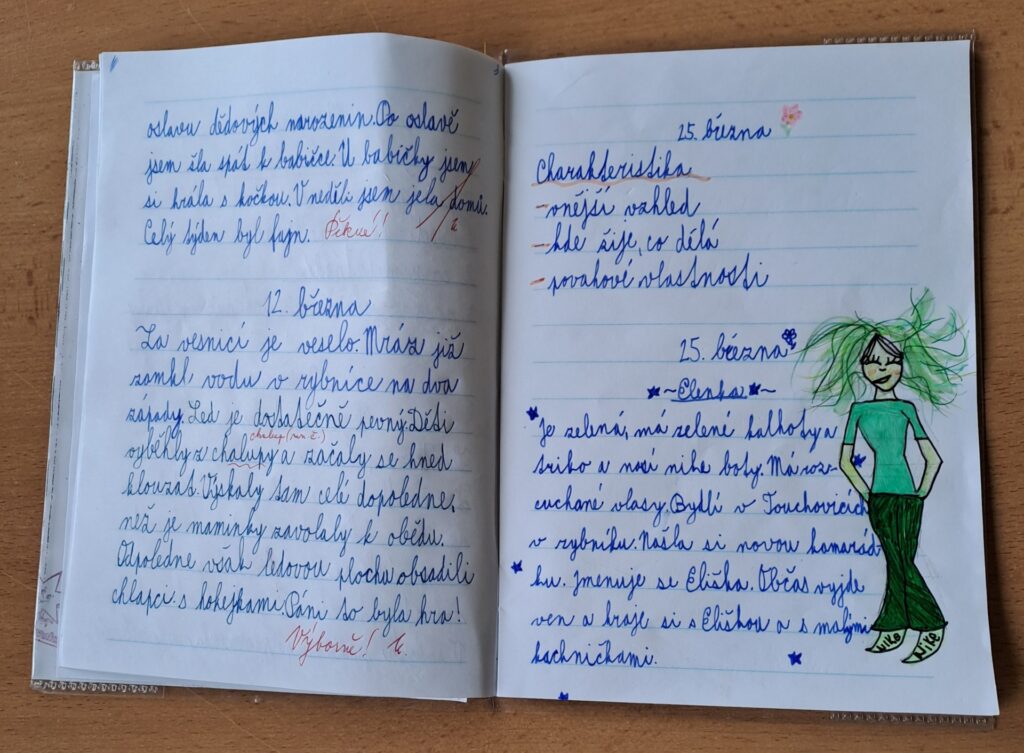 oslavu dědových narozenin. Po oslavě
jsem šla spát k babičce. U babičky jsem
si hrála s kočkou. V neděli jsem jela domů.
Celý týden byl fajn. Pěkné!
12. března
Za vesnicí je veselo. Mráz již
zamkl vodu v rybníce na dva
západy. Led je dostatečně pevný. Děti
chalup
vyběhly z chalupy a začaly se hned
klouzat. Výskaly tam celé dopoledne,
než je maminky zavolaly k obědu.
Odpoledne však ledovou plochu obsadili
chlapci s hokejkami. Páni to byla hra!
Výborně!
25. března
Charakteristika
-vnější vzhled
-kde žije, co dělá
-povahové vlastnosti
25. března
~Elenka~
Je zelená, má zelené kalhoty a
triko a nosí nike boty. Má roz-
cuchané vlasy. Bydlí v Touchovicích
v rybníku. Našla si novou kamarád-
ku. Jmenuje se Eliška. Občas vyjde
ven a hraje si s Eliškou a s malými
kachničkami.
NIKE NIKE